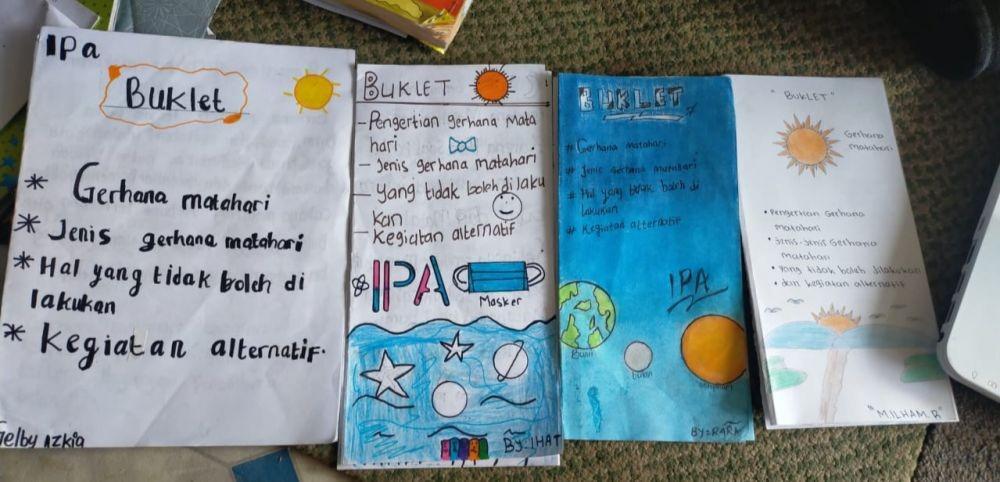 IPa
Buklet
* Gerhana matahari
* Jenis gerhana matahari
* Hal yang tidak boleh di
lakukan
* Kegiatan alternatif.
Gelby Azkia
BUKLET
- Pengertian gerhana mata
hari
- Jenis gerhana matahari
- yang tidak boleh di laku
kan
- Kegiatan alternatif
IPA
Masker
BY:IHAT
BUKLET
# Gerhana matahari
# Jenis Gerhana matahari
# Hal yang tidak boleh di
lakukan
# Kegiatan alternatif
IPA
Bumi
bulan
matahari
BY:RARA
"BUKLET"
Gerhana
matahari
• Pengertian Gerhana
matahari
• Jenis-Jenis Gerhana
matahari
• Yang tidak boleh dilakukan
• dan kegiatan alternatif
"M.ILHAM.R"